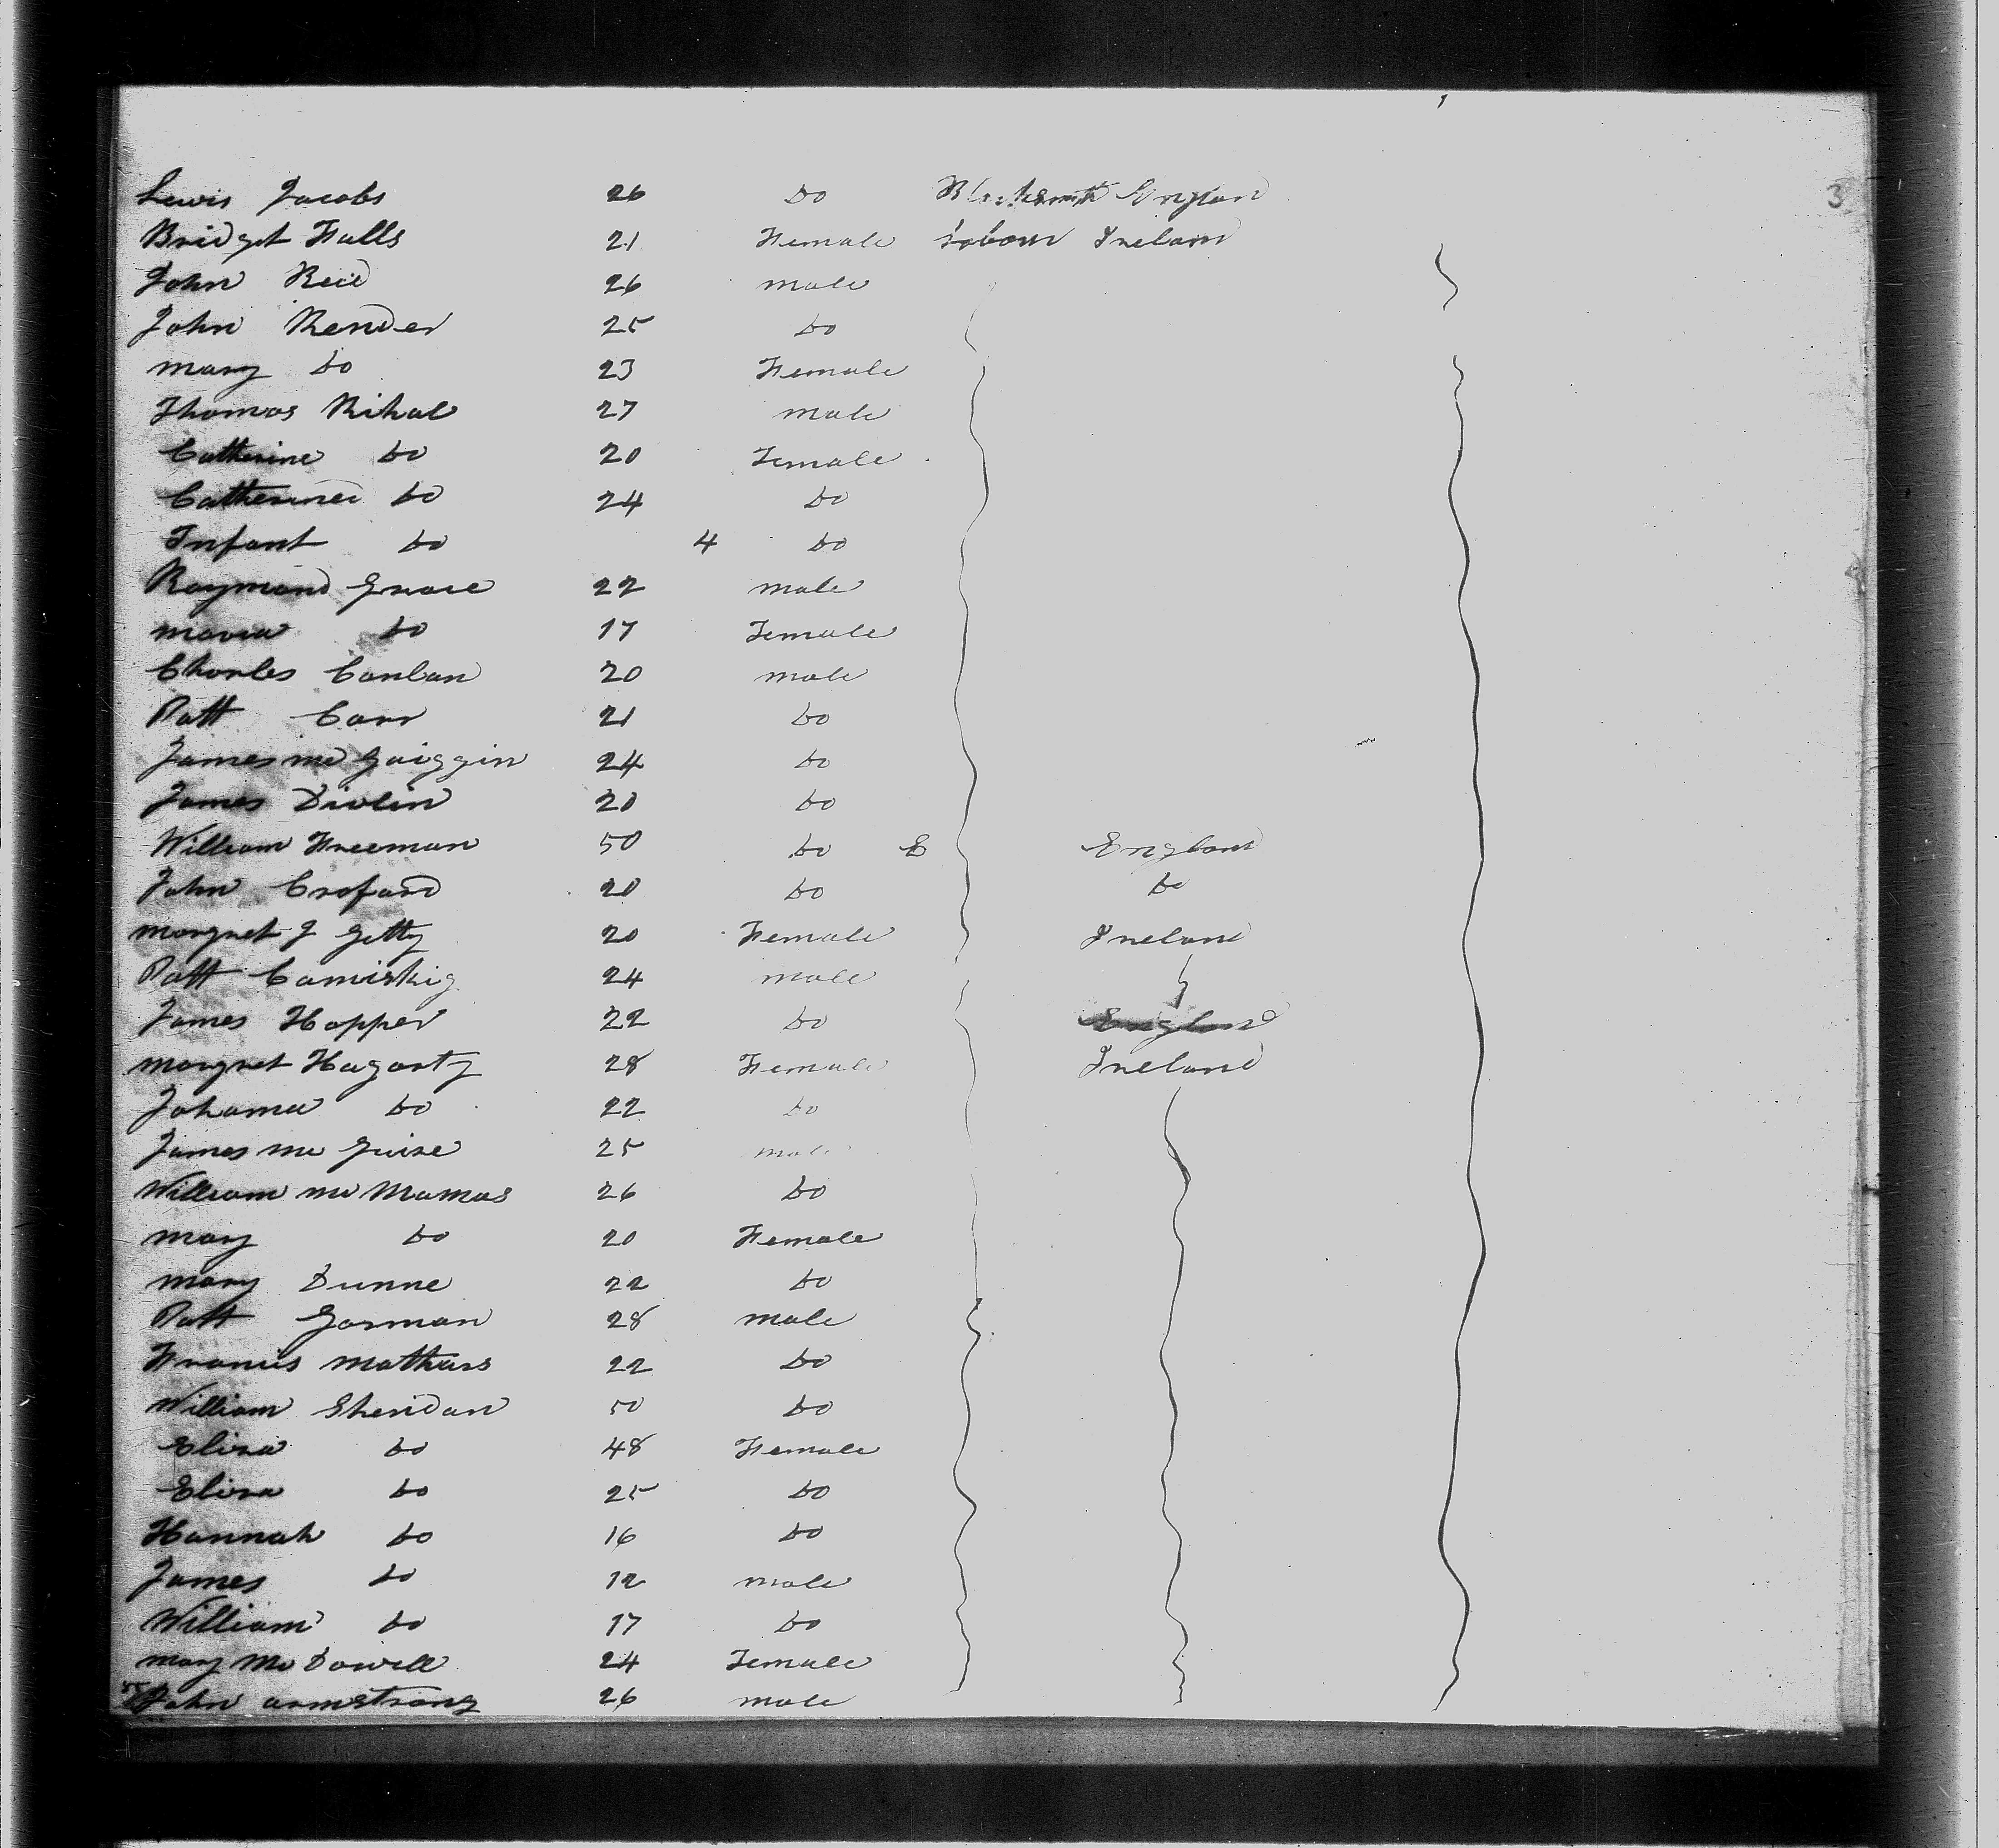 Lewis Jacobs 26 Do Blacksmith England 3
Bridget Falls 21 Female Labour Ireland
John Reid 26 male
John Render 25 Do
mary Do 23 Female
Thomas Rihal 27 male
Catherine Do 20 Female
Catherine Do 24 Do
Infant Do 4 Do
Raymond Grace 22 male
maria Do 17 Female
Charles Conlan 20 male
Patt Carr 21 Do
James mc Guiggin 24 Do
James Divlin 20 Do
William Freeman 50 Do E England
John Croford 20 Do Do
margret J Getty 20 Female Ireland
Patt Camiskig 24 male
James Hopper 22 Do England
margret Hagarty 28 Female Ireland
Johanna Do 22 Do
James mc Guire 25 male
William mc Mamas 26 Do
mary Do 20 Female
mary Dunne 22 Do
Patt Gorman 28 male
Francis mathurs 22 Do
William Sheridan 50 Do
Eliza Do 48 Female
Eliza Do 25 Do
Hannah Do 16 Do
James Do 12 male
William Do 17 Do
mary Mc Dowell 24 Female
John armstrong 26 male